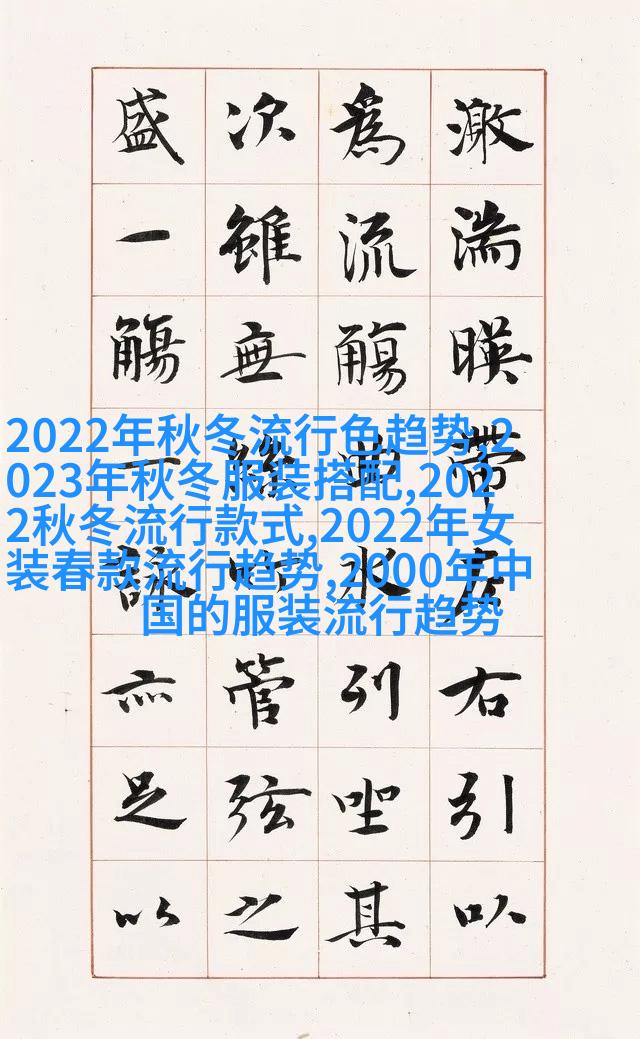 激湍暎帶左右引以
為流觴曲水列坐其
次雖無絲竹管弦之
盛一觴一詠亦足以
2022年秋冬流行色趋势,2
023年秋冬服装搭配,202
2秋冬流行款式,2022年女
装春款流行趋势,2000年中
国的服装流行趋势